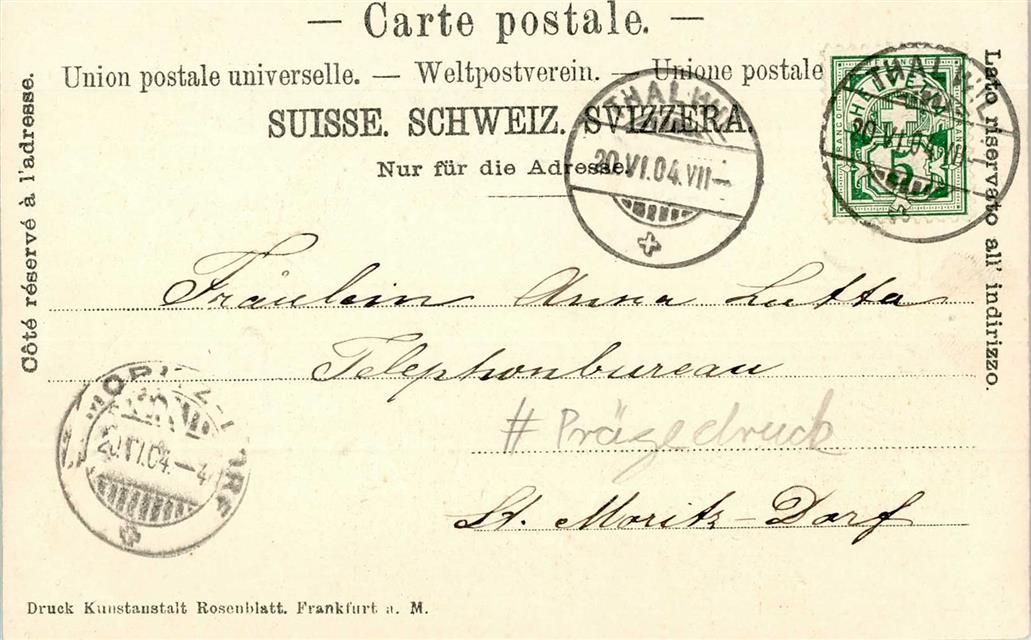 — Carte postale. —
Union postale universelle. — Weltpostverein. — Unione postale
SUISSE. SCHWEIZ. SVIZZERA.
Nur für die Adresse.
Côté réservé à l'adresse.
Lato riservato all' indirizzo.
THALWIL
20.VI.04.VII—
THALWIL
20.VI.04.VII
FRANCO
HELVETIA
5
Fräulein Anna Lutta
Telephonbureau
# Prägedruck
St. Moritz-Dorf
MORITZ-DORF
20.VI.04.—4
Druck Kunstanstalt Rosenblatt. Frankfurt a. M.